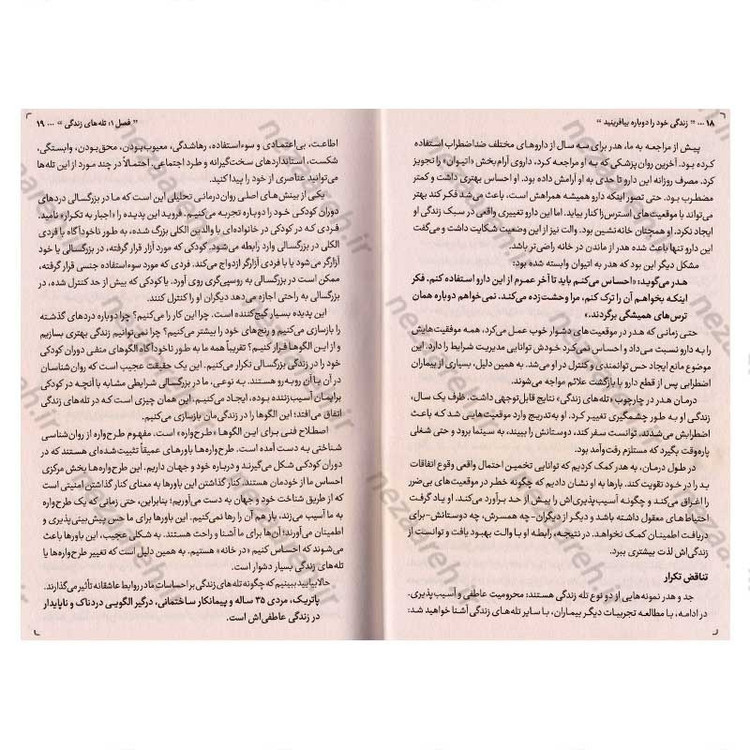 ۱۸ ... " زندگی خود را دوباره بیافرینید "
پیش از مراجعه به ما، هدر برای سه سال از داروهای مختلف ضداضطراب استفاده
کرده بود. آخرین روان‌پزشکی که به او مراجعه کرد، داروی آرام‌بخش «اتیوان» را تجویز
کرد. مصرف روزانه این دارو تا حدی به او آرامش داده بود. او احساس بهتری داشت و کمتر
مضطرب بود. حتی تصور اینکه دارو همیشه همراهش است، باعث می‌شد فکر کند بهتر
می‌تواند با موقعیت‌های استرس‌زا کنار بیاید. اما این دارو تغییری واقعی در سبک زندگی او
ایجاد نکرد. او همچنان خانه‌نشین بود. والت نیز از این وضعیت شکایت داشت و می‌گفت
این دارو تنها باعث شده هدر از ماندن در خانه راضی‌تر باشد.
مشکل دیگر این بود که هدر به اتیوان وابسته شده بود:
هدر می‌گوید: «احساس می‌کنم باید تا آخر عمرم از این دارو استفاده کنم. فکر
اینکه بخواهم آن را ترک کنم، مرا وحشت‌زده می‌کند. نمی‌خواهم دوباره همان
ترس‌های همیشگی برگردند.»
حتی زمانی که هدر در موقعیت‌های دشوار خوب عمل می‌کرد، همه موفقیت‌هایش
را به دارو نسبت می‌داد و احساس نمی‌کرد خودش توانایی مدیریت شرایط را دارد. این
موضوع مانع ایجاد حس توانمندی و کنترل در او می‌شد. به همین دلیل، بسیاری از بیماران
اضطرابی پس از قطع دارو با بازگشت علائم مواجه می‌شوند.
درمان هدر در چارچوب «تله‌های زندگی» نتایج قابل‌توجهی داشت. ظرف یک سال،
زندگی او به طور چشمگیری تغییر کرد. او به‌تدریج وارد موقعیت‌هایی شد که باعث
اضطرابش می‌شدند. توانست سفر کند، دوستانش را ببیند، به سینما برود و حتی شغلی
پاره‌وقت بگیرد که مستلزم رفت‌وآمد بود.
در طول درمان، به هدر کمک کردیم که توانایی تخمین احتمال واقعی وقوع اتفاقات
بد را در خود تقویت کند. بارها به او نشان دادیم که چگونه خطر در موقعیت‌های بی‌ضرر
را اغراق می‌کند و چگونه آسیب‌پذیری‌اش را بیش از حد برآورد می‌کند. او یاد گرفت
احتیاط‌های معقول داشته باشد و دیگر از دیگران-چه همسرش، چه دوستانش-برای
دریافت اطمینان کمک نخواهد. در نتیجه، رابطه او با والت بهبود یافت و توانست از
زندگی‌اش لذت بیشتری ببرد.
تناقض تکرار
جد و هدر نمونه‌هایی از دو نوع تله زندگی هستند: محرومیت عاطفی و آسیب‌پذیری.
در ادامه، با مطالعه تجربیات دیگر بیماران، با سایر تله‌های زندگی آشنا خواهید شد:
" فصل ۱؛ تله‌های زندگی " ... ۱۹
اطاعت، بی‌اعتمادی و سوءاستفاده، رهاشدگی، معیوب‌بودن، محق‌بودن، وابستگی،
شکست، استانداردهای سخت‌گیرانه و طرد اجتماعی. احتمالاً در چند مورد از این تله‌ها
می‌توانید عناصری از خود را پیدا کنید.
یکی از بینش‌های اصلی روان‌درمانی تحلیلی این است که ما در بزرگسالی دردهای
دوران کودکی خود را دوباره تجربه می‌کنیم. فروید این پدیده را «اجبار به تکرار» نامید.
فردی که در کودکی در خانواده‌ای با والدین الکلی بزرگ شده، به طور ناخودآگاه با فردی
الکلی در بزرگسالی وارد رابطه می‌شود. کودکی که مورد آزار قرار گرفته، در بزرگسالی یا خود
آزارگر می‌شود یا با فردی آزارگر ازدواج می‌کند. فردی که مورد سوءاستفاده جنسی قرار گرفته،
ممکن است در بزرگسالی به روسپی‌گری روی آورد. یا کودکی که بیش از حد کنترل شده، در
بزرگسالی به راحتی اجازه می‌دهد دیگران او را کنترل کنند.
این پدیده بسیار گیج‌کننده است. چرا این کار را می‌کنیم؟ چرا دوباره دردهای گذشته
را بازسازی می‌کنیم و رنج‌های خود را بیشتر می‌کنیم؟ چرا نمی‌توانیم زندگی بهتری بسازیم
و از این الگوها فرار کنیم؟ تقریباً همه ما به طور ناخودآگاه الگوهای منفی دوران کودکی
خود را در زندگی بزرگسالی تکرار می‌کنیم. این یک حقیقت عجیب است که روان‌شناسان
در آن با آن روبه‌رو هستند. به نوعی، ما در بزرگسالی شرایطی مشابه با آنچه در کودکی
برایمان آسیب‌زننده بوده، ایجاد می‌کنیم. این همان چیزی است که در تله‌های زندگی
اتفاق می‌افتد؛ این الگوها را در زندگی‌مان بازسازی می‌کنیم.
اصطلاح فنی برای این الگوها «طرح‌واره» است. مفهوم طرح‌واره از روان‌شناسی
شناختی به دست آمده است. طرح‌واره‌ها باورهای عمیقاً تثبیت‌شده‌ای هستند که در
دوران کودکی شکل می‌گیرند و درباره خود و جهان داریم. این طرح‌واره‌ها بخش مرکزی
احساس ما از خودمان هستند. کنار گذاشتن این باورها به معنای کنار گذاشتن امنیتی است
که از طریق شناخت خود و جهان به دست می‌آوریم؛ بنابراین، حتی زمانی که یک طرح‌واره
به ما آسیب می‌زند، باز هم آن را رها نمی‌کنیم. این باورها برای ما حس پیش‌بینی‌پذیری و
اطمینان می‌آورند؛ آن‌ها برای ما آشنا و راحت هستند. به شکلی عجیب، این باورها باعث
می‌شوند که احساس کنیم «در خانه» هستیم. به همین دلیل است که تغییر طرح‌واره‌ها یا
تله‌های زندگی بسیار دشوار است.
حالا بیایید ببینیم که چگونه تله‌های زندگی بر احساسات ما در روابط عاشقانه تأثیر می‌گذارند.
پاتریک، مردی ۳۵ ساله و پیمانکار ساختمانی، درگیر الگویی دردناک و ناپایدار
در زندگی عاطفی‌اش است.
nezareh.ir